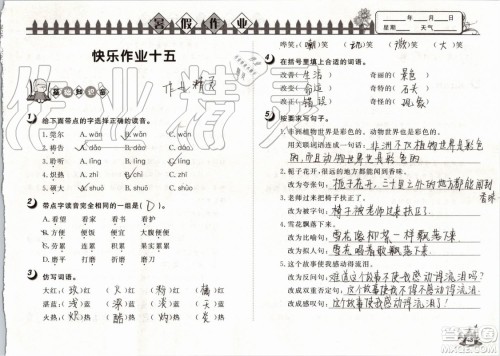 暑假作业
快乐作业十五
作业精灵
基础知识窗
1. 给下面带点的字选择正确的读音。
1. 莞尔 A. wān B. wǎn
2. 祷告 A. dǎo B. dào
3. 聆听 A. líng B. lǐng
4. 炽 A. chì B. zhì
5. 硕大 A. shuò B. shuō
2. 带点字读音完全相同的一组是( D )。
A. 看望 看家 看书 看护
B. 方便 便宜 便宜 大腹便便
C. 劳累 累累 积累 累计
D. 磨平 打磨 折磨 磨刀
3. 仿写词语。
大红:( 玫 )红 ( 火 )红 ( 粉 )红 ( 橘 )红
湛蓝:( 浅 )蓝 ( 深 )蓝 ( 天 )蓝 ( 蔚 )蓝
火热:( 炽 )热 ( 酷 )热 ( 灼 )热
______年____月____日
星期______ 天气______
哗笑:( 嘲 )笑 ( )笑 ( 微 )笑 ( 大 )笑
4. 在括号里填上合适的词语。
改善( 生活 ) 奇丽的( 景色 )
改变( 命运 ) 奇特的( 石头 )
改正( 错误 ) 奇怪的( 现象 )
5. 按要求写句子。
1. 非洲植物世界是彩色的。动物世界也是彩色的。
用关联词语连成一句话: 非洲不仅植物世界是彩色
的,而且动物世界也是彩色的
2. 栀子花开,很远的地方都能闻到香味。
改为夸张句: 栀子花开,三十里之外的地方都能闻到
香味
3. 老师过来把椅子扶正了。
改为被字句: 椅子被老师扶正了
4. 雪花飘落下来。
改为比喻句: 雪花像柳絮一样飘落下来
改为拟人句: 雪花唱着歌飘落下来
5. 这个故事使我感动得流泪。
改为反问句: 难道这个故事不使我感动得流泪吗?
改成双重否定句: 这个故事不得不使我感动得流泪。
改成感叹句: 这个故事使我感动得流泪了!